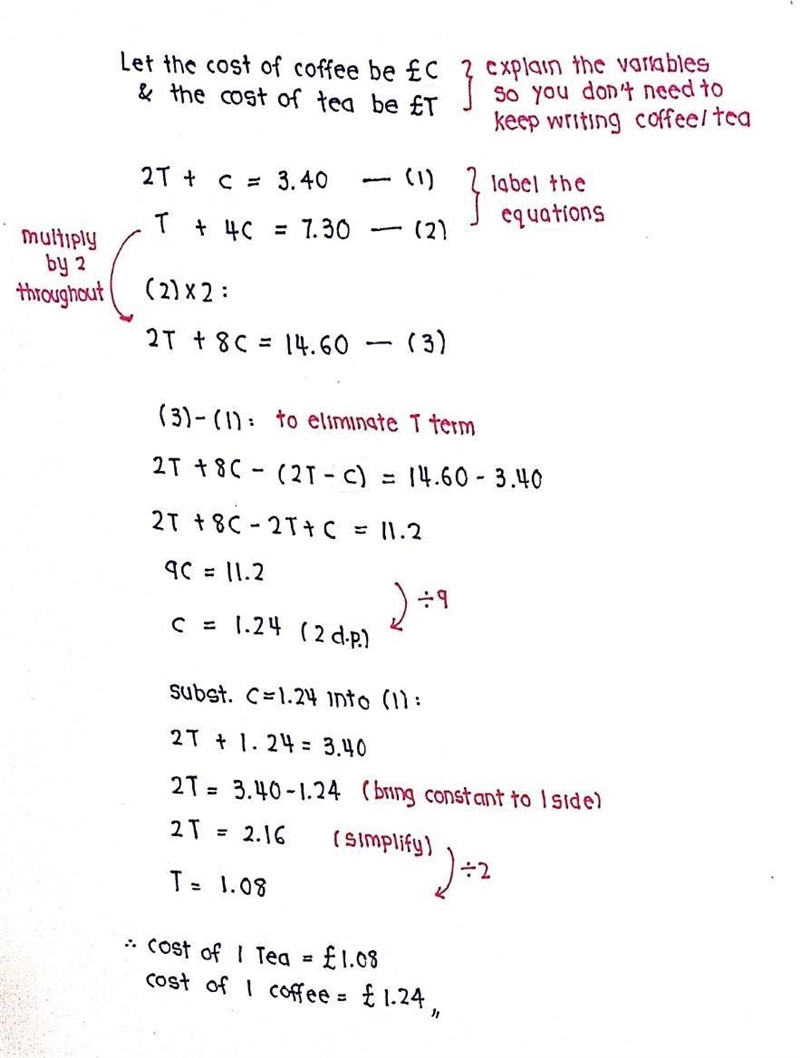 Let the cost of coffee be £C
& the cost of tea be £T
explain the variables
so you don't need to
keep writing coffee/tea
2T + C = 3.40 — (1)
T + 4C = 7.30 — (2)
label the
equations
multiply
by 2
throughout
(2)×2:
2T + 8C = 14.60 — (3)
(3)-(1): to eliminate T term
2T + 8C - (2T - C) = 14.60 - 3.40
2T + 8C - 2T + C = 11.2
9C = 11.2
÷9
C = 1.24 (2 d.p.)
subst. C=1.24 into (1):
2T + 1.24 = 3.40
2T = 3.40 - 1.24 (bring constant to 1 side)
2T = 2.16 (simplify)
÷2
T = 1.08
∴ cost of 1 Tea = £1.08
cost of 1 coffee = £1.24,,